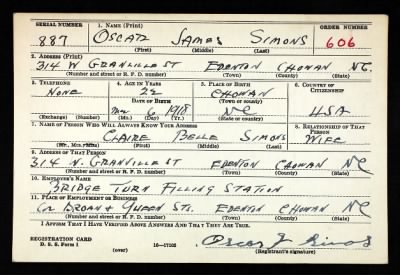 SERIAL NUMBER 1. NAME (Print) ORDER NUMBER
887 OSCAR JAMES SIMONS 606
(First) (Middle) (Last)
2. ADDRESS (Print)
314 W GRANVILLE ST EDENTON CHOWAN NC.
(Number and street or R. F. D. number) (Town) (County) (State)
3. TELEPHONE 4. AGE IN YEARS 5. PLACE OF BIRTH 6. COUNTRY OF CITIZENSHIP
NONE 22 CHOWAN
DATE OF BIRTH (Town or county)
6 1918 NC USA
(Mo.) (Day) (Yr.) (State or country)
7. NAME OF PERSON WHO WILL ALWAYS KNOW YOUR ADDRESS 8. RELATIONSHIP OF THAT PERSON
CLAIRE BELLE SIMONS WIFE
(Mr., Mrs., Miss) (First) (Middle) (Last)
9. ADDRESS OF THAT PERSON
314 N. GRANVILLE ST EDENTON CHOWAN NC
(Number and street or R. F. D. number) (Town) (County) (State)
10. EMPLOYER'S NAME
BRIDGE TURN FILLING STATION
11. PLACE OF EMPLOYMENT OR BUSINESS
Cor BROAD & QUEEN STS. EDENTON CHOWAN NC
(Number and street or R. F. D. number) (Town) (County) (State)
I AFFIRM THAT I HAVE VERIFIED ABOVE ANSWERS AND THAT THEY ARE TRUE.
REGISTRATION CARD
D. S. S. Form 1 16—17105 Oscar J Simons
(over) (Registrant's signature)